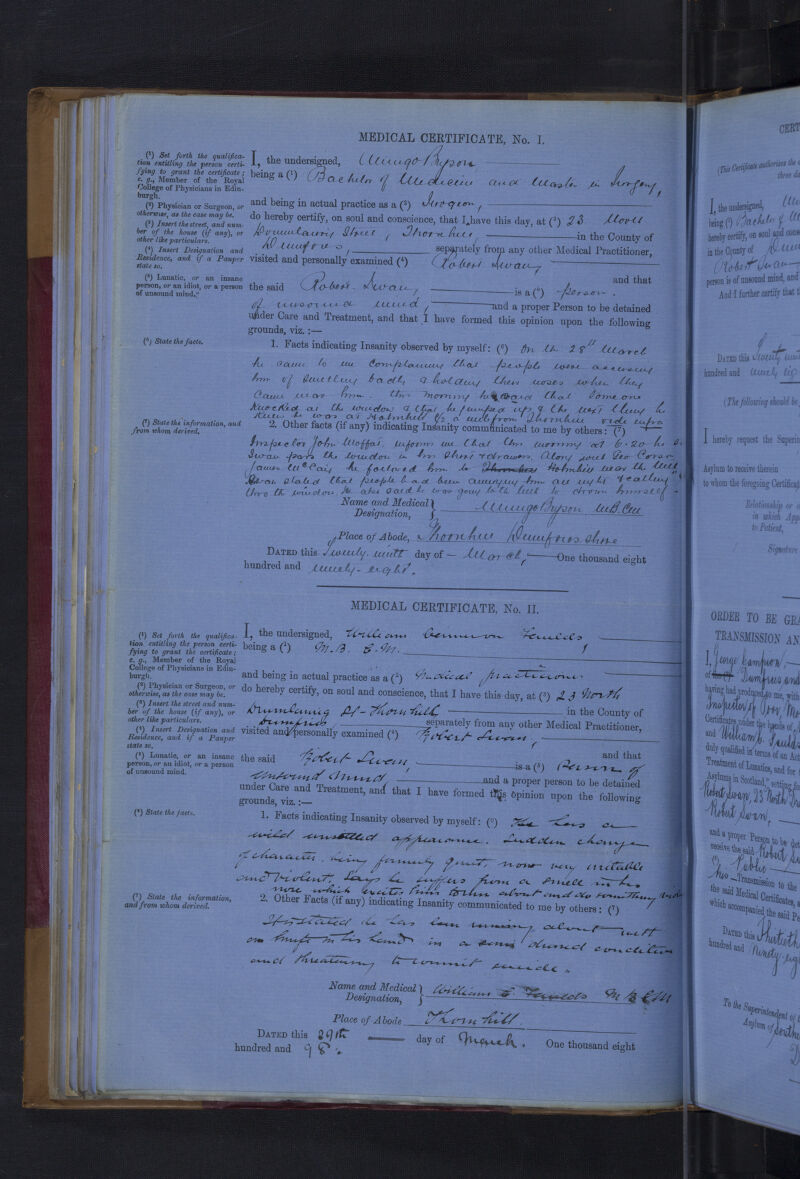 MEDICAL CERTIFICATE, No. I.
(1) Set forth the qualifica-
tion entitling the person certi-
fying to grant the certificate;
e. g., Member of the Royal
College of Physicians in Edin-
burgh.
(2) Physician or Surgeon, or
otherwise, as the case may be.
(3) Insert the street, and num-
ber of the house (if any), or
other like particulars.
(4) Insert Designation and
Residence, and if a Pauper
state so.
(5) Lunatic, or an insane
person, or an idiot, or a person
of unsound mind.
(6) State the facts.
(7) State the information, and
from whom derived.
I, the undersigned, Mungo Bryson
being a (1) Bachelor of Medicine and Master in Surgery,
and being in actual practice as a (2) Surgeon,
do hereby certify, on soul and conscience, that I have this day, at (3) 23
Street, Thornhill in the County of
Dumfries, separately from any other Medical Practitioner,
visited and personally examined (4) Robert Swan,
the said Robert Swan, is a (5) person and that
of unsound mind, and a proper Person to be detained
under Care and Treatment, and that I have formed this opinion upon the following
grounds, viz.:—
1. Facts indicating Insanity observed by myself: (6) On the 28th March
he came to me complaining that people were accusing
him of smelling badly & holding their noses when they
came near him this morning he heard that some one
knocked at the window & that he jumped up & the next thing he
knew he was at Holmhill ½ a mile from Thornhill vide infra
2. Other facts (if any) indicating Insanity communicated to me by others: (7)
Inspector John Moffat, informs me that this morning at 6.20 he
Swan pass the window in his shirt & drawers. Along with Geo
James McCaig he followed him to Holmhill near the
Swan stated that people had been annoying him all night & calling
thro the window. He also said he was going to the to drown himself
Name and Medical Designation, Mungo Bryson MB CM
Place of Abode, Thornhill Dumfries shire
DATED this Twenty ninth day of March, One thousand eight
hundred and ninety-eight.
MEDICAL CERTIFICATE, No. II.
(1) Set forth the qualifica-
tion entitling the person certi-
fying to grant the certificate;
e. g., Member of the Royal
College of Physicians in Edin-
burgh.
(2) Physician or Surgeon, or
otherwise, as the case may be.
(3) Insert the street and num-
ber of the house (if any), or
other like particulars.
(4) Insert Designation and
Residence, and if a Pauper
state so.
(5) Lunatic, or an insane
person, or an idiot, or a person
of unsound mind.
(6) State the facts.
(7) State the information,
and from whom derived.
I, the undersigned, William
being a (1) M.B. C.M.
and being in actual practice as a (2) Medical practitioner
do hereby certify, on soul and conscience, that I have this day, at (3) 23 North
Drumlanrig St Thornhill in the County of
Dumfries separately from any other Medical Practitioner,
visited and personally examined (4) Robert Swan,
the said Robert Swan, is a (5) Person of and that
unsound mind and a proper person to be detained
under Care and Treatment, and that I have formed this opinion upon the following
grounds, viz.:—
1. Facts indicating Insanity observed by myself: (6) He has a
wild unsettled appearance. Sudden change
of character, being formerly quiet, now very irritable
and violent. Says he suffers from a smell in his
nose which excites him to run about and do something
2. Other Facts (if any) indicating Insanity communicated to me by others: (7)
It is stated he has been running about with
a knife in his hand in a semi condition
and threatening to commit suicide.
Name and Medical Designation, William M B CM
Place of Abode Thornhill.
DATED this 29th day of March. One thousand eight
hundred and 98.
CERT
I, the undersigned,
being (1) Bachelor of
hereby certify, on soul and
in the County of
Robert Swan
person is of unsound mind, and
And I further certify that
DATED this Twenty
hundred and ninety
(The following should be
I hereby request the
Asylum to receive therein
to whom the foregoing Certificat
Relationship or
in which
to Patient,
Signature
ORDER TO BE GRA
TRANSMISSION AN
I, George Hampson,
of Dumfries and
having had produced to me, with
Inspector of Poor,
Certificates under the hands of
and William
duly qualified in terms of an Act
Treatment of Lunatics, and for
Asylums in Scotland," setting
Robert Swan, 23 North
Robert Swan,
and a proper Person to be det
receive the said Robert
Public
Transmission to the
the said Medical Certificates, a
which accompanied the said
DATED this Thirtieth
hundred and Ninety
To the Superintendent of
Asylum of